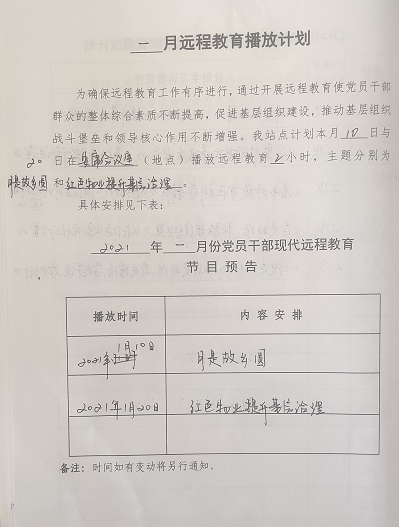 一 月远程教育播放计划
为确保远程教育工作有序进行,通过开展远程教育使党员干部
群众的整体综合素质不断提高,促进基层组织建设,推动基层组织
战斗堡垒和领导核心作用不断增强。我站点计划本月 10 日与
20 日在 会议室 (地点)播放远程教育 2 小时,主题分别为
月是故乡圆 和 红色物业提升基层治理 .
具体安排见下表:
2021 年 一 月份党员干部现代远程教育
节目预告
播放时间 内容安排
2021年1月10日 月是故乡圆
2021年1月20日 红色物业提升基层治理
备注:时间如有变动将另行通知。